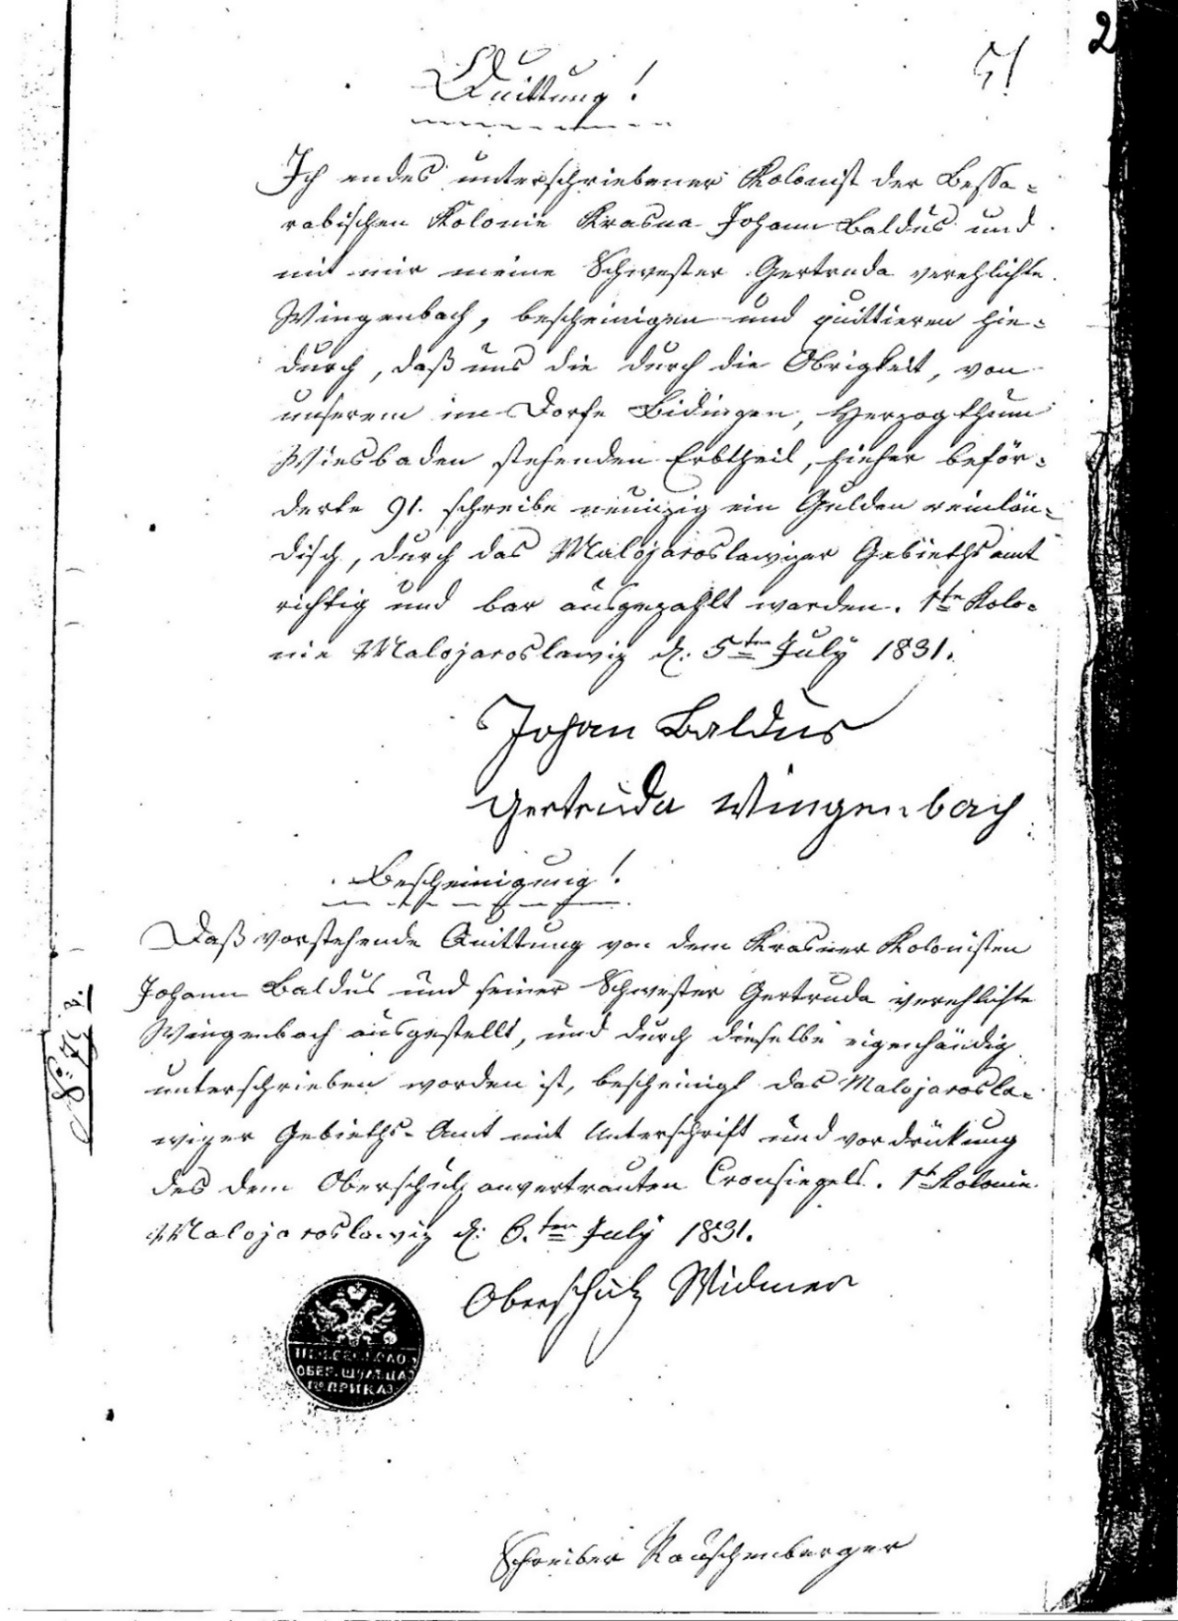 2
5/
Quittung!
Ich endes unterschriebener Kolonist der Bessa-
rabischen Kolonie Krasna Johann Baldus und
mit mir meine Schwester Gertruda verehlichte
Wingenbach, bescheinigen und quittieren hie-
durch, daß uns die durch die Obrigkeit, von
unserem im Dorfe Bidingen, Herzogthum
Wiesbaden stehenden Erbtheil, hieher beför-
derte 91. schreibe neunzig ein Gulden reinlän-
disch, durch das Malojaroslawizer Gebiethsamt
richtig und bar ausgezahlt worden. 1te Kolo-
nie Malojaroslawiz d. 5ten July 1831.
Johan Baldus
Gertruda Wingenbach
Bescheinigung!
Daß vorstehende Quittung von dem Krasner Kolonisten
Johann Baldus und seiner Schwester Gertruda verehlichte
Wingenbach ausgestellt, und durch dieselbe eigenhändig
unterschrieben worden ist, bescheinigt das Malojarosla-
wizer Gebieths-Amt mit Unterschrift und vordrückung
des dem Oberschulz anvertrauten Cronsiegels. 1te Kolonie
Malojaroslawiz d. 6.ten July 1831.
Oberschulz Widmer
ОБЕР. ШУЛЬЦА
ПРИКАЗ
Schreiber Rauschenberger